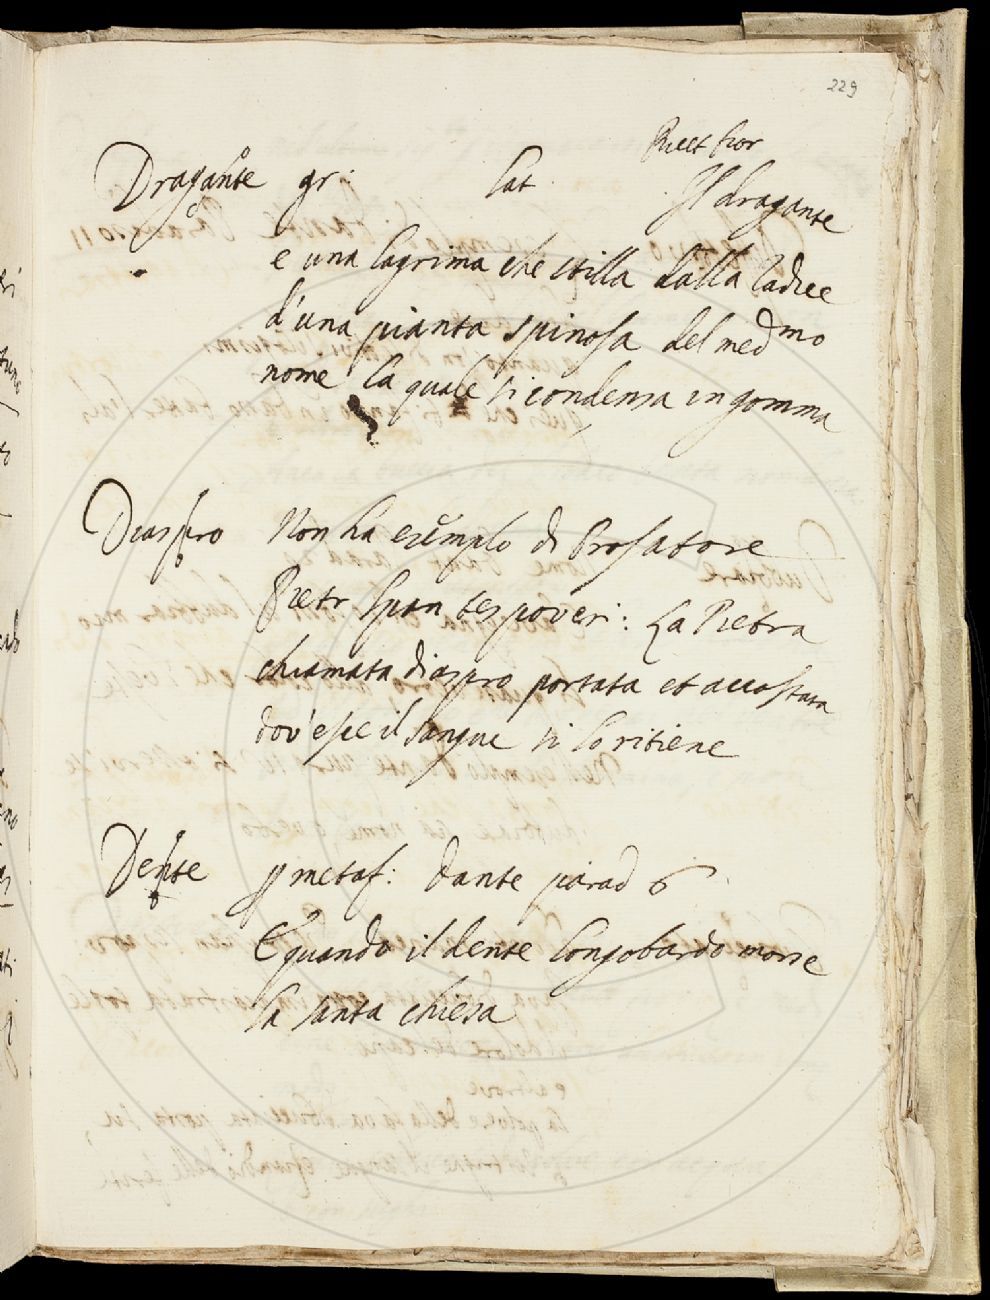 229
Ricet fior
Dragante gr: lat. Il dragante
e una lagrima che stilla dalla radice
d'una pianta spinosa del medmo
nome la quale si condensa in gomma
Diaspro Non ha esemplo di Prosatore
Pietr Span tes poveri: La Pietra
chiamata diaspro portata et accostata
dov'esce il sangue si lo ritiene
Dente p metaf: Dante parad 6
E quando il dente longobardo morse
la santa chiesa